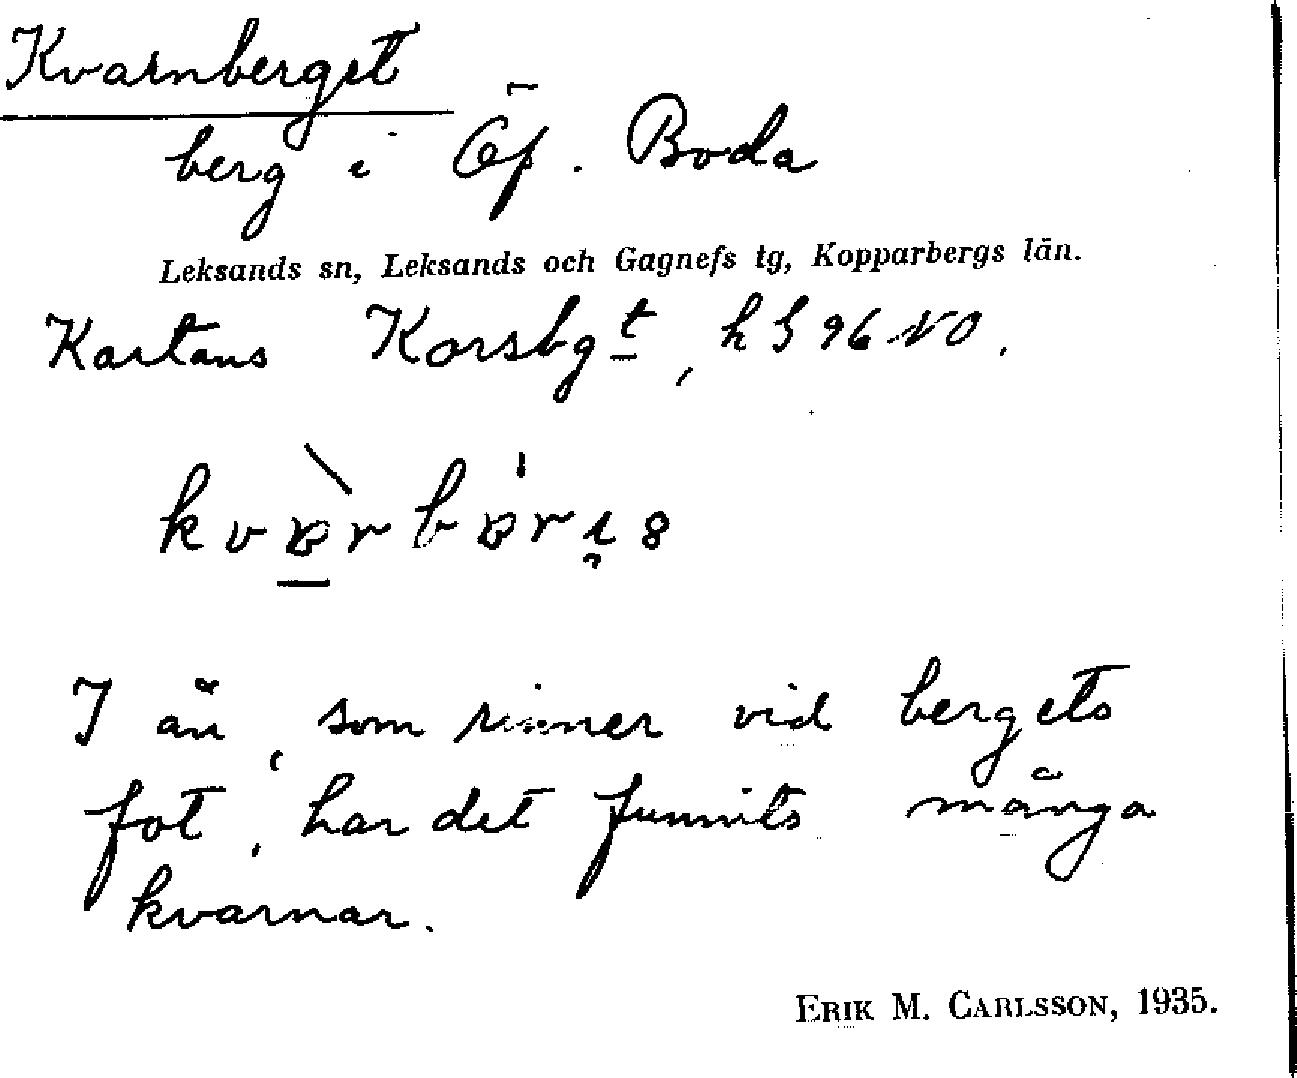 Kvarnberget
berg i Öf. Boda
Leksands sn, Leksands och Gagnefs tg, Kopparbergs län.
Kartans Korsbgt, h S 96 NO.
I ån, som rinner vid bergets
fot, har det funnits många
kvarnar.
ERIK M. CARLSSON, 1935.